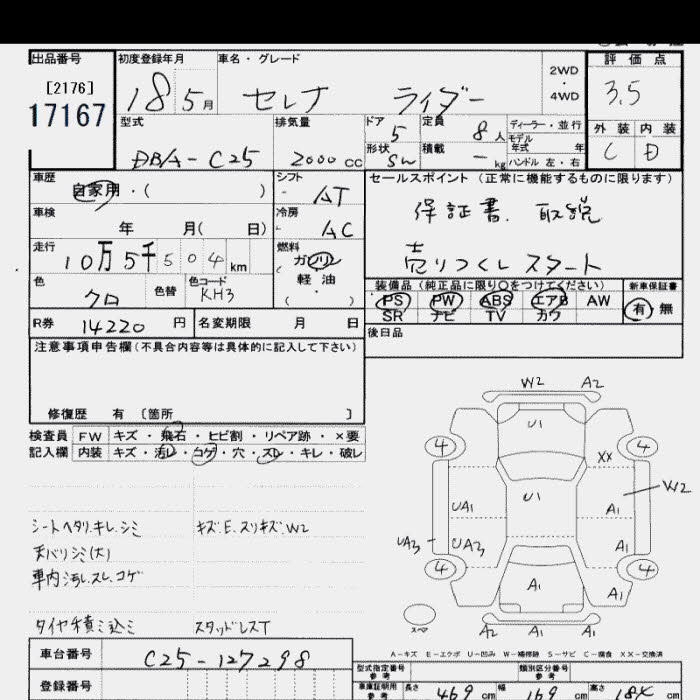 出品番号 初度登録年月 車名・グレード 2WD・4WD 評価点
[2176]
17167
18 5月 セレナ ライダー 3.5
型式 排気量 ドア 5 定員 8人 ディーラー・並行 外装 内装
モデル年式 年
DBA-C25 2000cc 形状 SW 積載 -kg ハンドル 左・右 C D
車歴 シフト セールスポイント (正常に機能するものに限ります)
自家用・( ) AT
車検 冷房 保証書. 取説
年 月( 日) AC
走行 燃料
10万5千504km ガソリン 売りつくしスタート
軽油
( )
色 色替 色コード 装備品 (純正品に限り〇をつけてください) 新車保証書
クロ KH3 PS PW ABS エアB AW 有・無
SR ナビ TV カワ
R券 14220円 名変期限 月 日 後日品
注意事項申告欄(不具合内容等は具体的に記入して下さい)
修復歴 有 〔箇所 〕
検査員 FW キズ・飛石・ヒビ割・リペア跡・×要
記入欄 内装 キズ・汚レ・コゲ・穴・スレ・キレ・破レ
W2 A2
U1
4 4
XX
W2
UA1 U1 A1
UA3 UA3 A1
4 4
A1
スペア A2 A1 A1
シートヘタリ.キレ.シミ キズ.E.スリキズ.W2
天バリシミ(大)
車内汚レ.スレ.コゲ
タイヤ積ミ込ミ スタッドレスT
A-キズ E-エクボ U-凹み W-補修跡 S-サビ C-腐食 XX-交換済
車台番号 C25-127298
型式指定番号 参考 類別区分番号 参考
登録番号 車庫証明用 参考 長さ 469cm 幅 169cm 高さ 18 cm